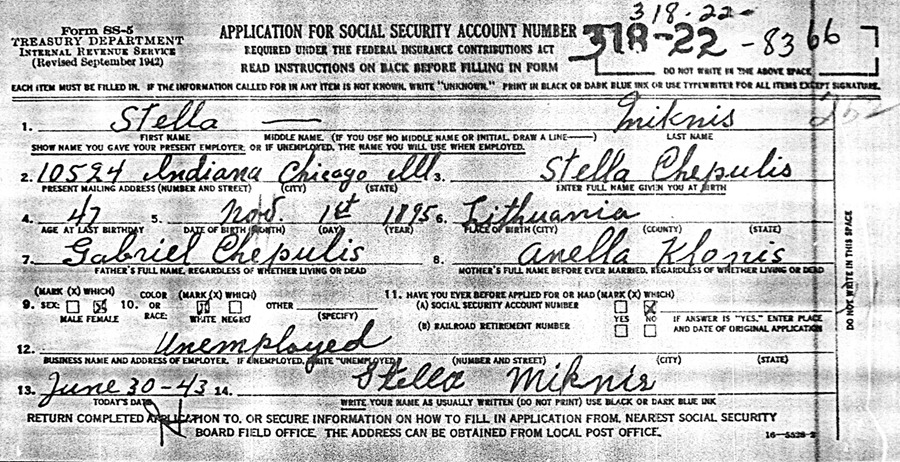 318-22-
Form SS-5
TREASURY DEPARTMENT
INTERNAL REVENUE SERVICE
(Revised September 1942)
APPLICATION FOR SOCIAL SECURITY ACCOUNT NUMBER
REQUIRED UNDER THE FEDERAL INSURANCE CONTRIBUTIONS ACT
READ INSTRUCTIONS ON BACK BEFORE FILLING IN FORM
318-22-8366
DO NOT WRITE IN THE ABOVE SPACE
EACH ITEM MUST BE FILLED IN. IF THE INFORMATION CALLED FOR IN ANY ITEM IS NOT KNOWN, WRITE "UNKNOWN." PRINT IN BLACK OR DARK BLUE INK OR USE TYPEWRITER FOR ALL ITEMS EXCEPT SIGNATURE.
1. Stella — Miknis
FIRST NAME MIDDLE NAME. (IF YOU USE NO MIDDLE NAME OR INITIAL, DRAW A LINE——) LAST NAME
SHOW NAME YOU GAVE YOUR PRESENT EMPLOYER, OR IF UNEMPLOYED, THE NAME YOU WILL USE WHEN EMPLOYED.
2. 10524 Indiana Chicago Ill 3. Stella Chepulis
PRESENT MAILING ADDRESS (NUMBER AND STREET) (CITY) (STATE) ENTER FULL NAME GIVEN YOU AT BIRTH
4. 47 5. Nov. 1st 1895 6. Lithuania
AGE AT LAST BIRTHDAY DATE OF BIRTH (MONTH) (DAY) (YEAR) PLACE OF BIRTH (CITY) (COUNTY) (STATE)
7. Gabriel Chepulis 8. Anella Klonis
FATHER'S FULL NAME, REGARDLESS OF WHETHER LIVING OR DEAD MOTHER'S FULL NAME BEFORE EVER MARRIED, REGARDLESS OF WHETHER LIVING OR DEAD
(MARK (X) WHICH) COLOR (MARK (X) WHICH) 11. HAVE YOU EVER BEFORE APPLIED FOR OR HAD (MARK (X) WHICH)
9. SEX: X 10. OR RACE: X OTHER (A) SOCIAL SECURITY ACCOUNT NUMBER X
MALE FEMALE WHITE NEGRO (SPECIFY) YES NO IF ANSWER IS "YES," ENTER PLACE
(B) RAILROAD RETIREMENT NUMBER AND DATE OF ORIGINAL APPLICATION
12. Unemployed
BUSINESS NAME AND ADDRESS OF EMPLOYER. IF UNEMPLOYED, WRITE "UNEMPLOYED" (NUMBER AND STREET) (CITY) (STATE)
13. June 30-43 14. Stella Miknis
TODAY'S DATE WRITE YOUR NAME AS USUALLY WRITTEN (DO NOT PRINT) USE BLACK OR DARK BLUE INK
RETURN COMPLETED APPLICATION TO, OR SECURE INFORMATION ON HOW TO FILL IN APPLICATION FROM, NEAREST SOCIAL SECURITY
BOARD FIELD OFFICE. THE ADDRESS CAN BE OBTAINED FROM LOCAL POST OFFICE.
DO NOT WRITE IN THIS SPACE